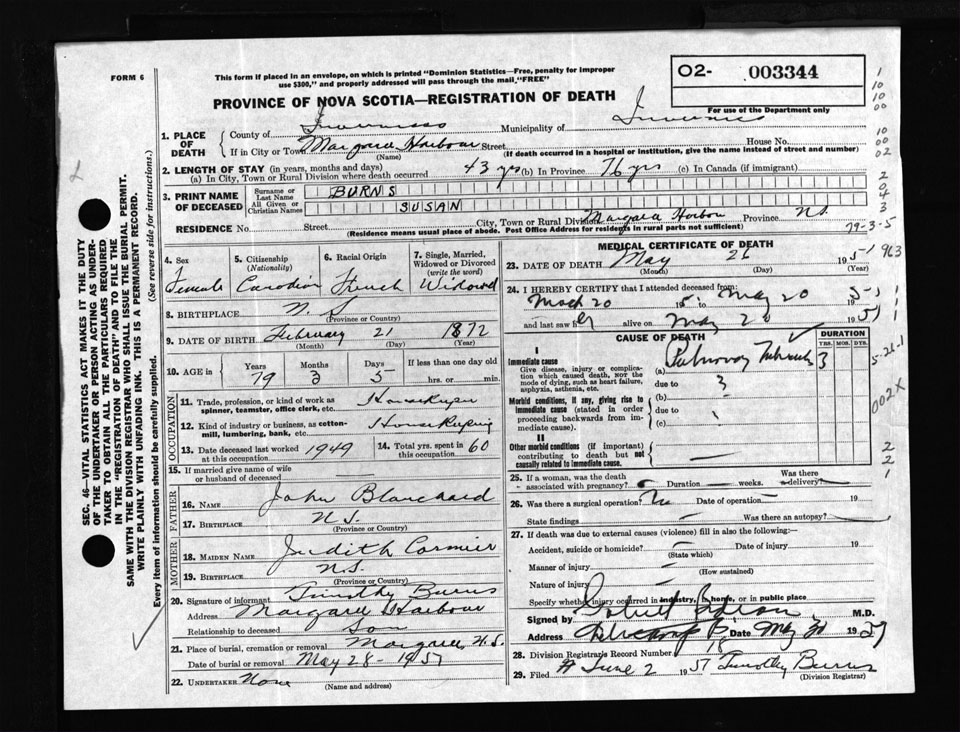 FORM 6
This form if placed in an envelope, on which is printed "Dominion Statistics—Free, penalty for improper use $300," and properly addressed will pass through the mail "FREE"
02- 003344
For use of the Department only
PROVINCE OF NOVA SCOTIA—REGISTRATION OF DEATH
SEC. 46—VITAL STATISTICS ACT MAKES IT THE DUTY
OF THE UNDERTAKER OR PERSON ACTING AS UNDER-
TAKER TO OBTAIN ALL THE PARTICULARS REQUIRED
IN THE "REGISTRATION OF DEATH" AND TO FILE THE
SAME WITH THE DIVISION REGISTRAR WHO SHALL ISSUE THE BURIAL PERMIT.
WRITE PLAINLY WITH UNFADING INK. THIS IS A PERMANENT RECORD.
Every item of information should be carefully supplied. (See reverse side for instructions.)
1. PLACE OF DEATH
County of Inverness Municipality of Inverness
If in City or Town Margaree Harbour Street House No.
(Name) (If death occurred in a hospital or institution, give the name instead of street and number)
2. LENGTH OF STAY (in years, months and days)
(a) In City, Town or Rural Division where death occurred 43 yrs (b) In Province 76 yrs (c) In Canada (if immigrant)
3. PRINT NAME OF DECEASED
Surname or Last Name BURNS
All Given or Christian Names SUSAN
RESIDENCE No. Street City, Town or Rural Division Margaree Harbour Province N.S.
(Residence means usual place of abode. Post Office Address for residents in rural parts not sufficient)
79-3-5
4. Sex Female
5. Citizenship (Nationality) Canadian
6. Racial Origin French
7. Single, Married, Widowed or Divorced (write the word) Widowed
8. BIRTHPLACE N.S.
(Province or Country)
9. DATE OF BIRTH February 21 1872
(Month) (Day) (Year)
10. AGE in Years 79 Months 3 Days 5 If less than one day old hrs. or min.
OCCUPATION
11. Trade, profession, or kind of work as spinner, teamster, office clerk, etc. Housekeeper
12. Kind of industry or business, as cotton-mill, lumbering, bank, etc. Housekeeping
13. Date deceased last worked at this occupation 1949
14. Total yrs. spent in this occupation 60
15. If married give name of wife or husband of deceased
FATHER
16. NAME John Blanchard
17. BIRTHPLACE N.S.
(Province or Country)
MOTHER
18. MAIDEN NAME Judith Cormier
19. BIRTHPLACE N.S.
(Province or Country)
20. Signature of informant Timothy Burns
Address Margaree Harbour
Relationship to deceased Son
21. Place of burial, cremation or removal Margaree, N.S.
Date of burial or removal May 28-1951
22. UNDERTAKER None
(Name and address)
MEDICAL CERTIFICATE OF DEATH
23. DATE OF DEATH May 26 1951
(Month) (Day) (Year)
24. I HEREBY CERTIFY that I attended deceased from:
March 20 to May 20 1951
and last saw her alive on May 20 1951
CAUSE OF DEATH DURATION
YRS. MOS. DYS.
I
Immediate cause (a) Pulmonary Tuberculosis 3
Give disease, injury or complication which caused death, not the mode of dying, such as heart failure, asphyxia, asthenia, etc.
due to
Morbid conditions, if any, giving rise to immediate cause (stated in order proceeding backwards from immediate cause).
(b)
due to
(c)
II
Other morbid conditions (if important) contributing to death but not causally related to immediate cause.
5-26-1
002X
25. If a woman, was the death associated with pregnancy? Duration weeks. Was there a delivery?
26. Was there a surgical operation? No Date of operation 19
State findings Was there an autopsy?
27. If death was due to external causes (violence) fill in also the following:
Accident, suicide or homicide? Date of injury 19
(State which)
Manner of injury
(How sustained)
Nature of injury
Specify whether injury occurred in industry, in home, or in public place
Signed by M.D.
Address Date May 19 51
28. Division Registrar's Record Number 18
29. Filed June 2 1951 Timothy Burns
(Division Registrar)